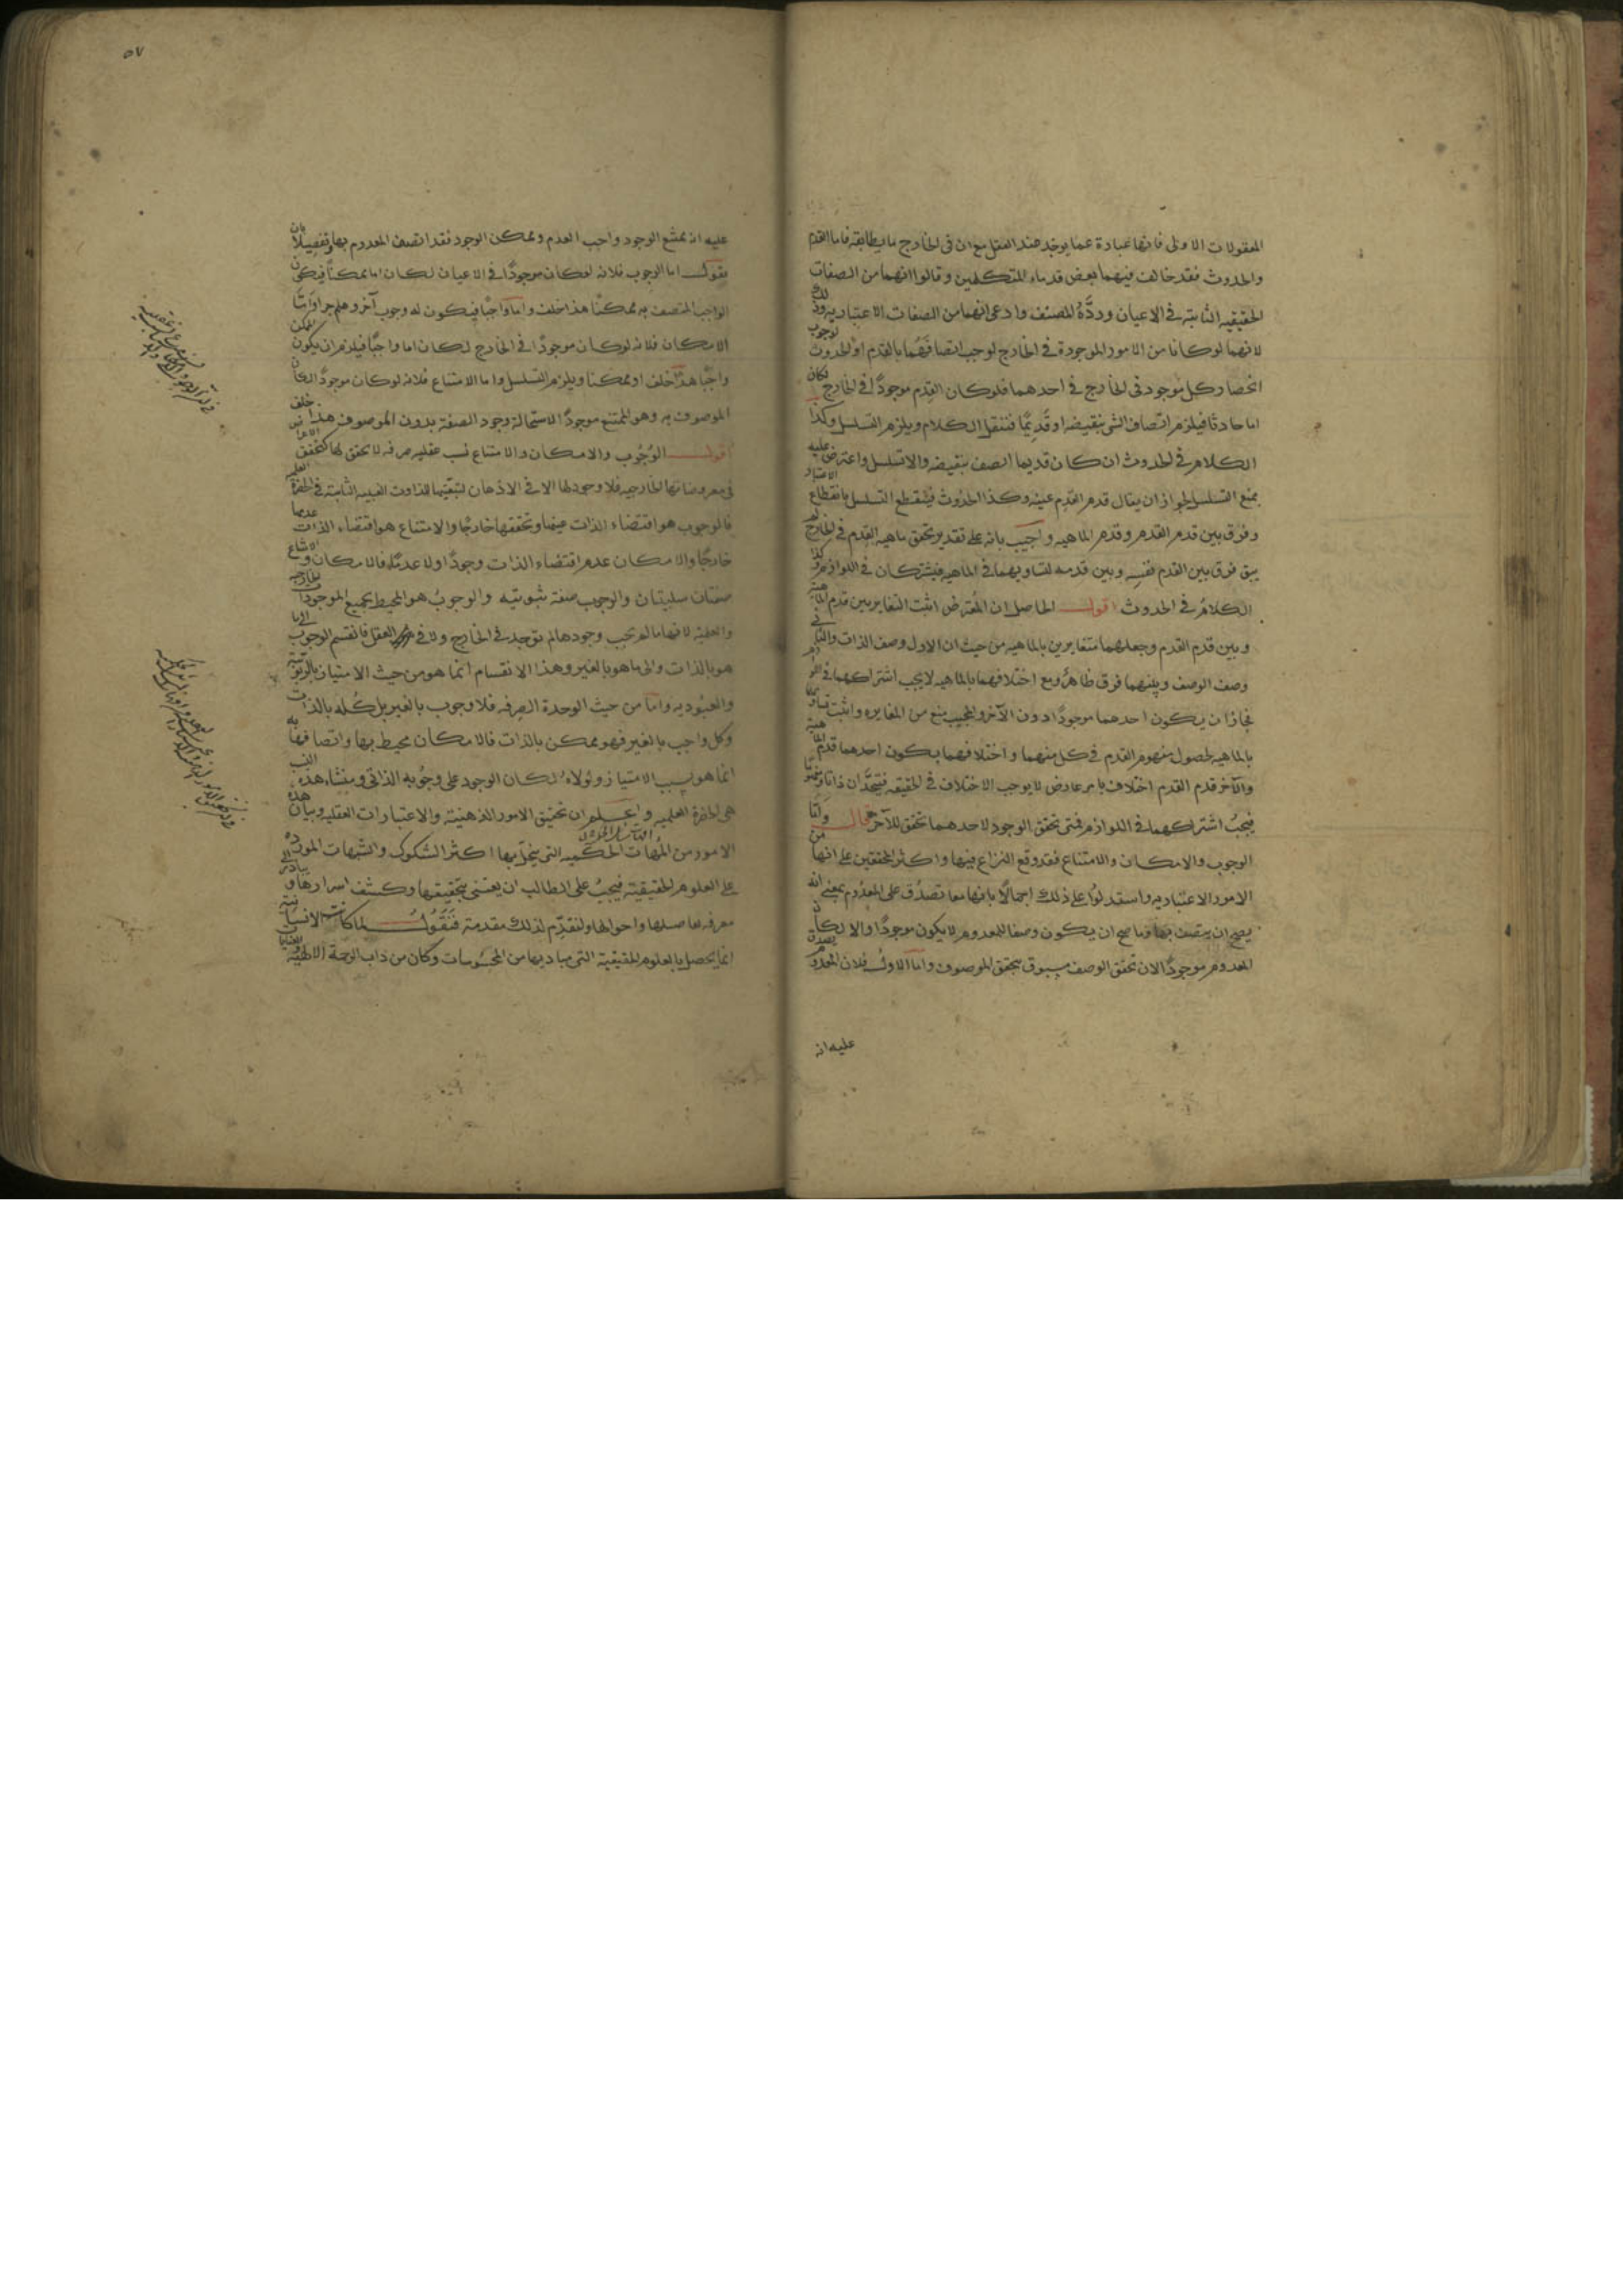 المعقولات الاولى فانها عبارة عما يوجد عند العقل مع ان فى الخارج ما يطابقه فاما القدم
والحدوث فقد خالف فيهما بعض قدماء المتكلمين وقالوا انهما من الصفات
الحقيقيه الثابته فى الاعيان وردَّهُ المصنف وادعى انهما من الصفات الاعتباريه وذلك
لانهما لو كانا من الامور الموجودة فى الخارج لوجب اتصافهُما بالقدم او الحدوث لوجوب
انحصار كل موجود فى الخارج فى احدهما فلو كان القدم موجودًا فى الخارج لكان
اما حادثا فيلزم اتصاف الشى بنقيضه او قديمًا فننقل الكلام ويلزم التسلسل وكذا
الكلام فى الحدوث ان كان قديما اتصف بنقيضه والا تسلسل واعترض عليه
بمنع التسلسل لجواز ان يقال قدم القدم عينه وكذا الحدوث فينقطع التسلسل بانقطاع الاعتبار
وفرق بين قدم القدم وقدم الماهيه واجيب بانه على تقدير تحقق ماهيه القدم فى الخارج لم
يبق فرق بين القدم نفسه وبين قدمه لتساويهما فى الماهيه فيشتركان فى اللوازم وكذا
الكلامُ فى الحدوث اقول الحاصل ان المُعترض اثبت التغاير بين قدم الماهية
وبين قدم القدم وجعلهما متغايرين بالماهيه من حيث ان الاول وصف الذات والثانى
وصف الوصف وبينهما فرق ظاهرٌ ومع اختلافهما بالماهيه لا يجب اشتراكهما فى اللوازم
فجاز ان يكون احدهما موجودًا دون الآخر والمجيب منع من المغايره واثبت تساويهما
بالماهيه لحصول مفهوم القدم فى كل منهما واختلافهما بكون احدهما قدم الماهية
والآخر قدم القدم اختلاف بامر عارض لا يوجب الاختلاف فى الحقيقه فيتحدان ذاتا ومفهومًا
فيجبُ اشتراكهما فى اللوازم فمتى تحقق الوجود لاحدهما تحقق للآخر قال وامّا
الوجوب والامكان والامتناع فقد وقع النزاع فيها واكثر المحققين على انها من
الامور الاعتباريه واستدلُوا على ذلك اجمالاً بانها معا تصدُق على المعدُوم بمعنى انه
يصح ان يتصف بها وما صح ان يكون وصفا للمعدوم لا يكون موجودًا والا لكان
المعدوم موجودًا لان تحقق الوصف مسبوق بتحقق الموصوف واما الاولُ فلان المعدوم يصدق
عليه انه
٥٧
عليه انه ممتنع الوجود واجب العدم وممكن الوجود فقد اتصف المعدوم بها وتفصيلاً بان
نقول اما الوجوب فلانه لو كان موجودًا فى الاعيان لكان اما ممكنًا فيكون
الواجب المتصف به ممكنًا هذا خلف واما واجبًا فيكون له وجوب آخر وهلم جرا وامّا
الامكان فلانه لو كان موجودًا فى الخارج لكان اما واجبًا فيلزم ان يكون الممكن
واجبًا هذا خلف او ممكنا ويلزم التسلسل واما الامتناع فلانه لو كان موجودًا لكان
الموصوف به وهو الممتنع موجودًا لاستحالة وجود الصفة بدون الموصوف هذا خلف
اقول الوُجُوب والامكان والامتناع نسب عقليه صرفه لا تحقق لها كتحقق الاعراض
فى معروضاتها الخارجيه فلا وجود لها الا فى الاذهان لتبعيّتها للذاوت الغيبيه الثابته فى الحضرة العلمية
فالوجوب هو اقتضاء الذات عينها وتحققها خارجًا والامتناع هو اقتضاء الذات عدمها
خارجًا والامكان عدم اقتضاء الذات وجودًا ولا عدمًا فالامكان والامتناع
صفتان سلبيتان والوجوب صفة ثبوتيه والوجوبُ هو المحيط بجميع الموجودات الخارجيه
والعقليّه لانها ما لم تجب وجودها لم توجد فى الخارج ولا فى العقل فانقسم الوجوب الى ما
هو بالذات والى ما هو بالغير وهذا الانقسام انما هو من حيث الامتياز بالربوبية
والعبوديه واما من حيث الوحدة الصرفه فلا وجوب بالغير بل كُله بالذات
وكل واجب بالغير فهو ممكن بالذات فالامكان محيط بها واتصافها به
انما هو بسبب الامتياز ولولاه لكان الوجود على وجُوبه الذاتى ومنشاء هذه النسب
هى الحضرة العلميه واعلم ان تحقيق الامور الذهنيّة والاعتبارات العقليه وبيان هذه
الامور من المُهمات الحكميه التى ينحل بها اكثر الشكوك والشبهات الموردة
على العلوم الحقيقيّة فيجبُ على الطالب ان يعتنى بتحقيقها وكشف اسرارها و
معرفه تفاصيلها واحوالها ولنقدّم لذلك مقدمة فنقُولُ لما كانت الانسانية
انما يحصل بالعلوم الحقيقية التى مباديها من المحسُوسات وكان من داب الرحمة الالهيّة